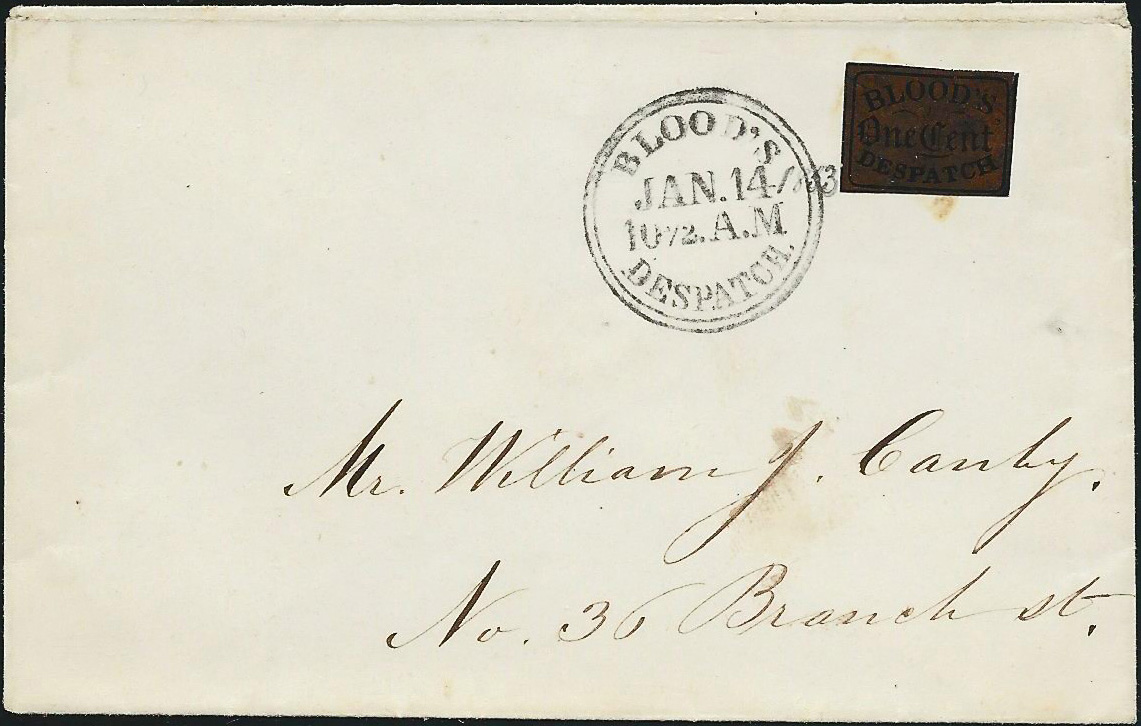 BLOOD'S
JAN. 14
10 1/2. A.M
DESPATCH.
BLOOD'S
One Cent
DESPATCH
Mr. William J. Canby.
No. 36 Branch st.